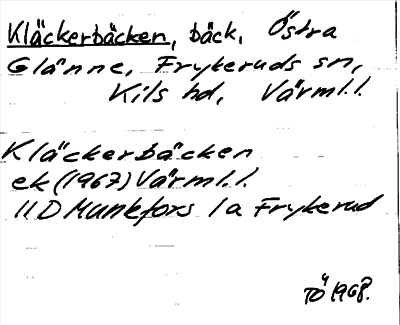 Kläckerbäcken, bäck, Östra
Glänne, Frykeruds sn,
Kils hd, Värml.l.
Kläckerbäcken
ek (1967) Värml.l.
11D Munkfors 1a Frykerud
TÖ 1968.